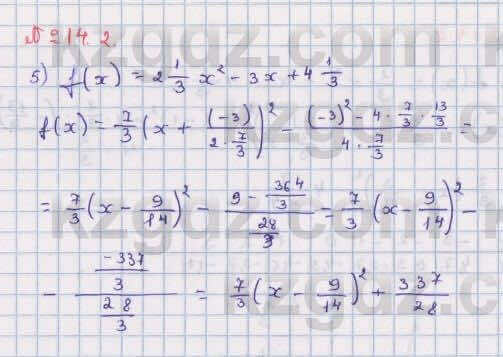 № 214.2.
5) f(x) = 2 1/3 x² - 3x + 4 1/3
f(x) = 7/3 (x + (-3)/(2 · 7/3))² - ((-3)² - 4 · 7/3 · 13/3)/(4 · 7/3) =
= 7/3 (x - 9/14)² - (9 - 364/3)/(28/3) = 7/3 (x - 9/14)² -
- (-337/3)/(28/3) = 7/3 (x - 9/14)² + 337/28
kzgdz.com